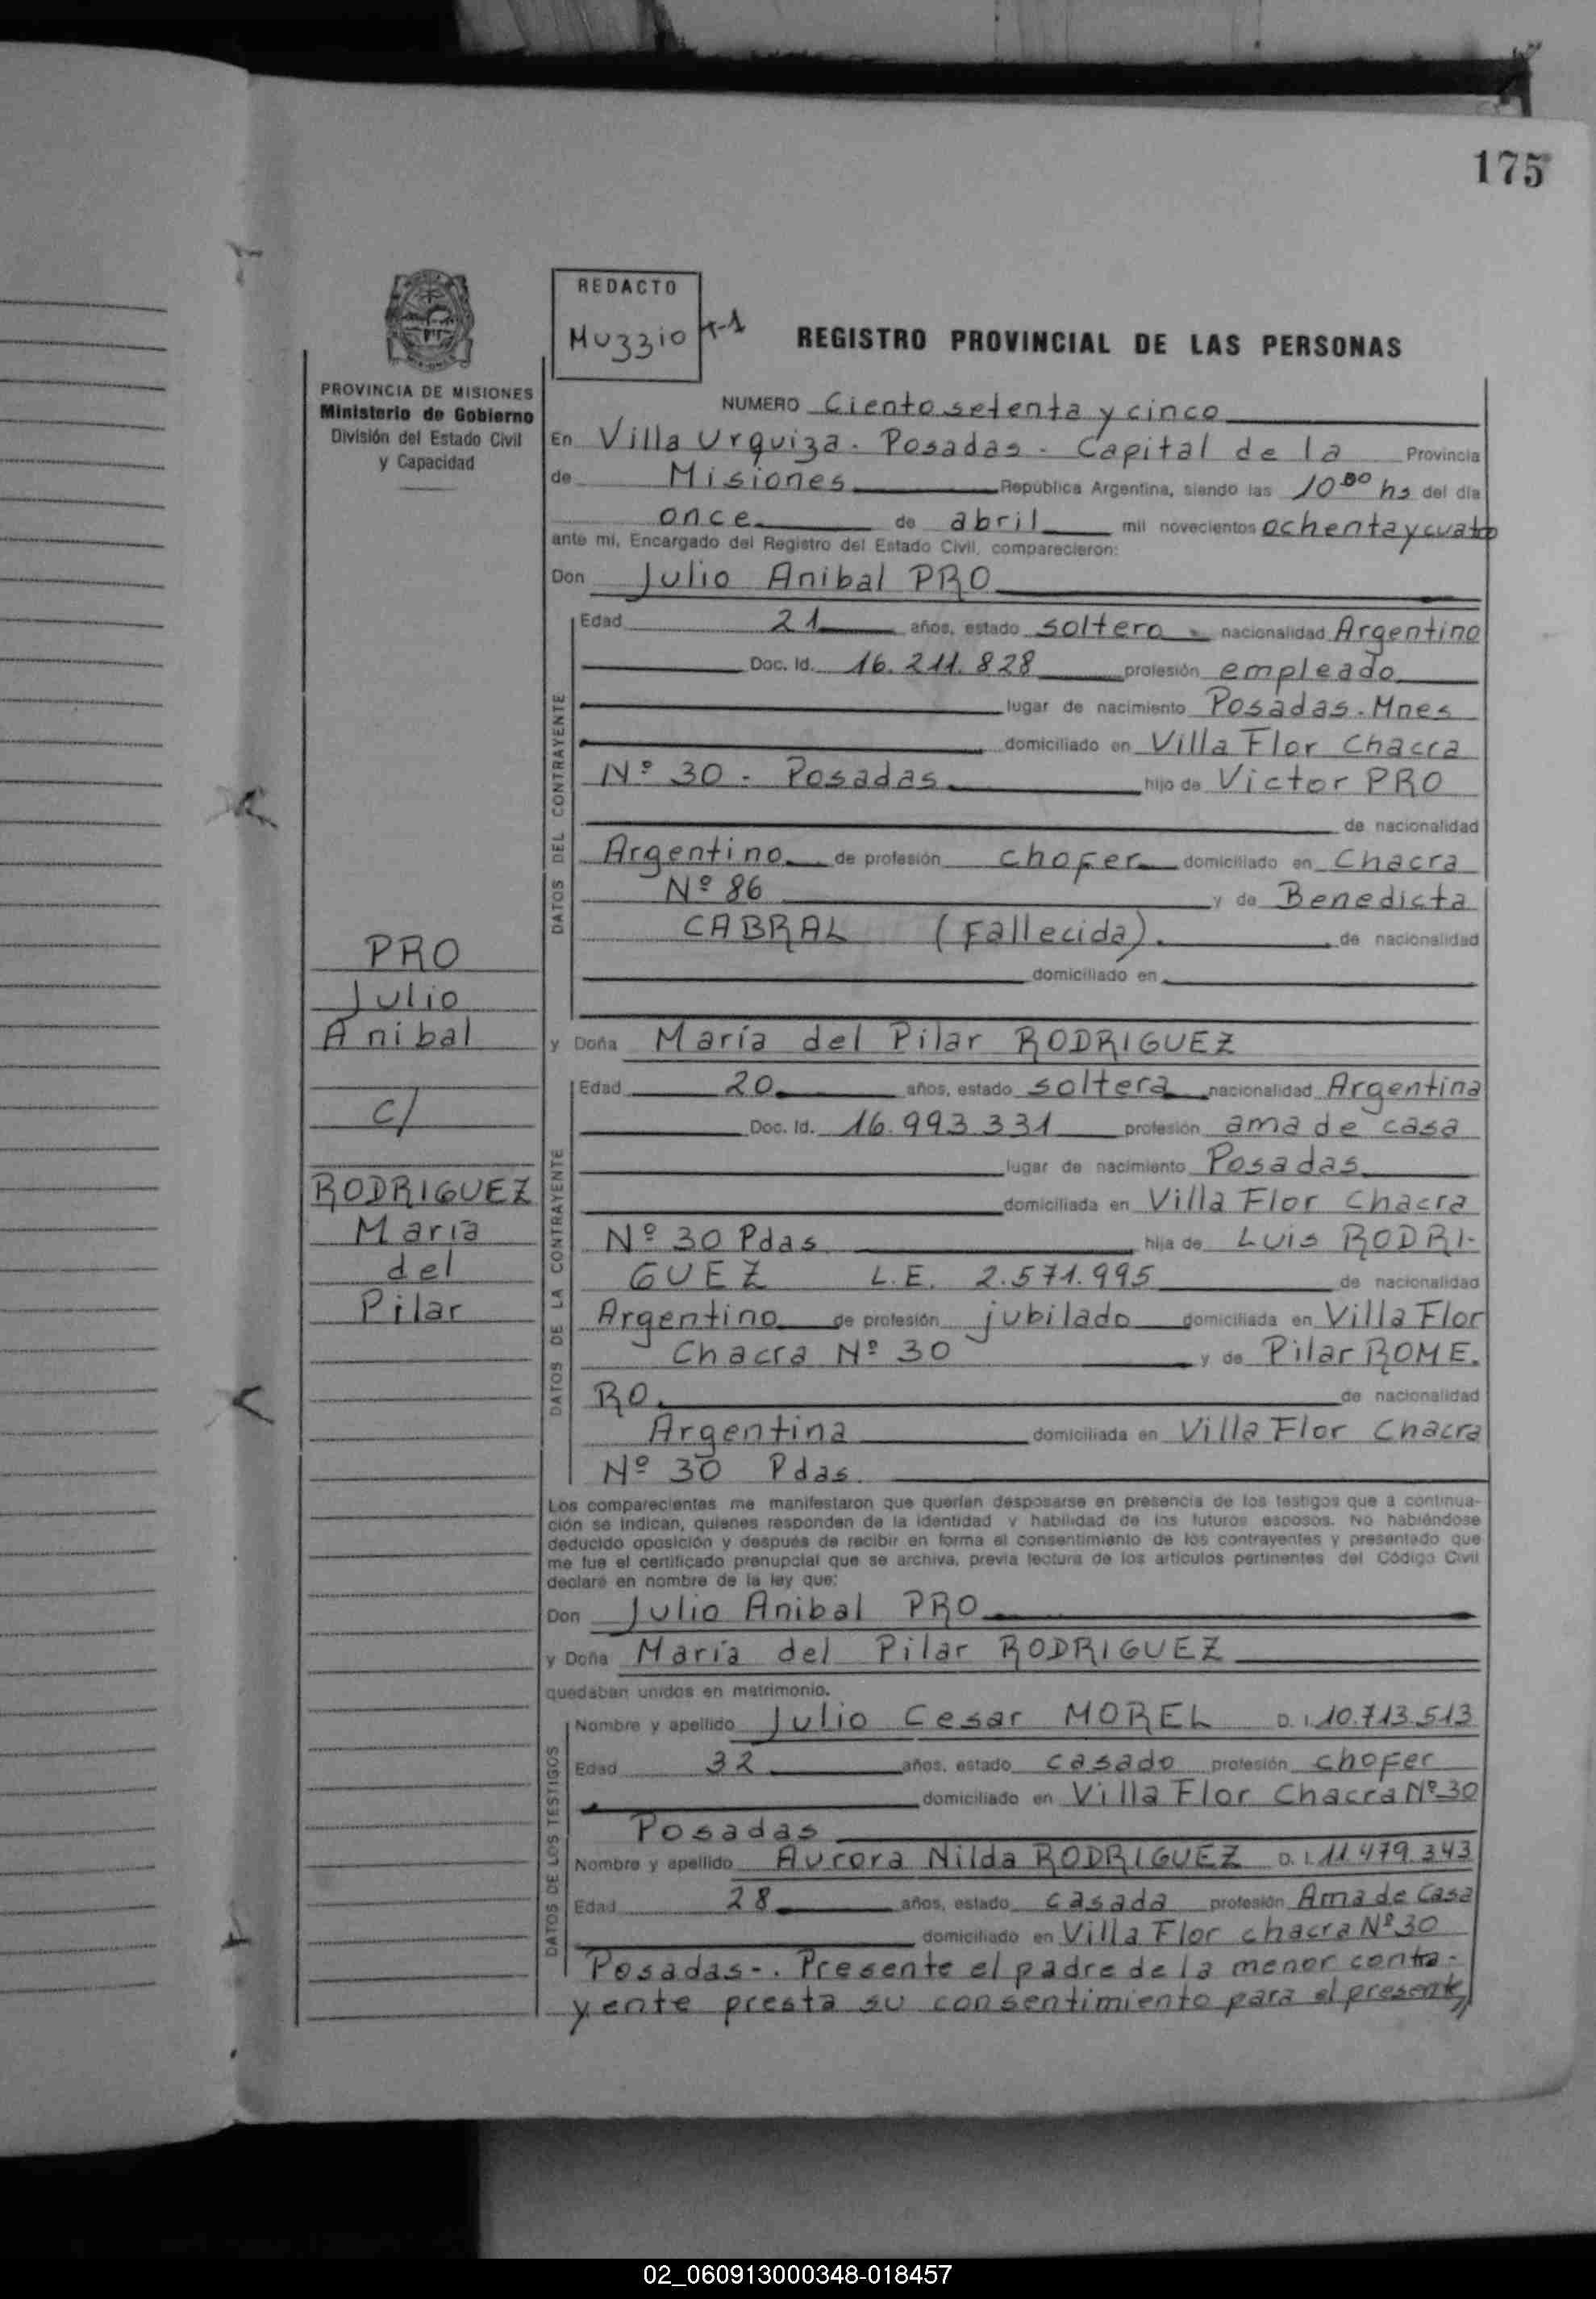 175
REDACTO
Muzzio T-1
REGISTRO PROVINCIAL DE LAS PERSONAS
PROVINCIA DE MISIONES
Ministerio de Gobierno
División del Estado Civil
y Capacidad
NUMERO Ciento setenta y cinco
En Villa Urquiza. Posadas. Capital de la Provincia
de Misiones República Argentina, siendo las 10⁰⁰ hs del día
once de abril mil novecientos ochenta y cuatro
ante mi, Encargado del Registro del Estado Civil, comparecieron:
Don Julio Anibal PRO
DATOS DEL CONTRAYENTE
Edad 21 años, estado soltero nacionalidad Argentino
Doc. Id. 16.211.828 profesión empleado
lugar de nacimiento Posadas. Mnes
domiciliado en Villa Flor Chacra
Nº 30 - Posadas hijo de Victor PRO
de nacionalidad
Argentino de profesión chofer domiciliado en Chacra
Nº 86 y de Benedicta
CABRAL (Fallecida). de nacionalidad
domiciliado en
PRO
Julio
Anibal
c/
RODRIGUEZ
Maria
del
Pilar
y Doña María del Pilar RODRIGUEZ
DATOS DE LA CONTRAYENTE
Edad 20 años, estado soltera nacionalidad Argentina
Doc. Id. 16.993.331 profesión ama de casa
lugar de nacimiento Posadas
domiciliada en Villa Flor Chacra
Nº 30 Pdas hija de Luis RODRI-
GUEZ L.E. 2.571.995 de nacionalidad
Argentino de profesión jubilado domiciliada en Villa Flor
Chacra Nº 30 y de Pilar ROME.
RO. de nacionalidad
Argentina domiciliada en Villa Flor Chacra
Nº 30 Pdas.
Los comparecientes me manifestaron que querían desposarse en presencia de los testigos que a continua-
ción se indican, quienes responden de la identidad y habilidad de los futuros esposos. No habiéndose
deducido oposición y después de recibir en forma el consentimiento de los contrayentes y presentado que
me fue el certificado prenupcial que se archiva, previa lectura de los artículos pertinentes del Código Civil
declaré en nombre de la ley que:
Don Julio Anibal PRO
y Doña María del Pilar RODRIGUEZ
quedaban unidos en matrimonio.
DATOS DE LOS TESTIGOS
Nombre y apellido Julio Cesar MOREL D. I. 10.713.513
Edad 32 años, estado casado profesión chofer
domiciliado en Villa Flor Chacra Nº 30
Posadas
Nombre y apellido Aurora Nilda RODRIGUEZ D. I. 11.479.343
Edad 28 años, estado casada profesión Ama de Casa
domiciliado en Villa Flor chacra Nº 30
Posadas-. Presente el padre de la menor contra-
yente presta su consentimiento para el presente
02_060913000348-018457